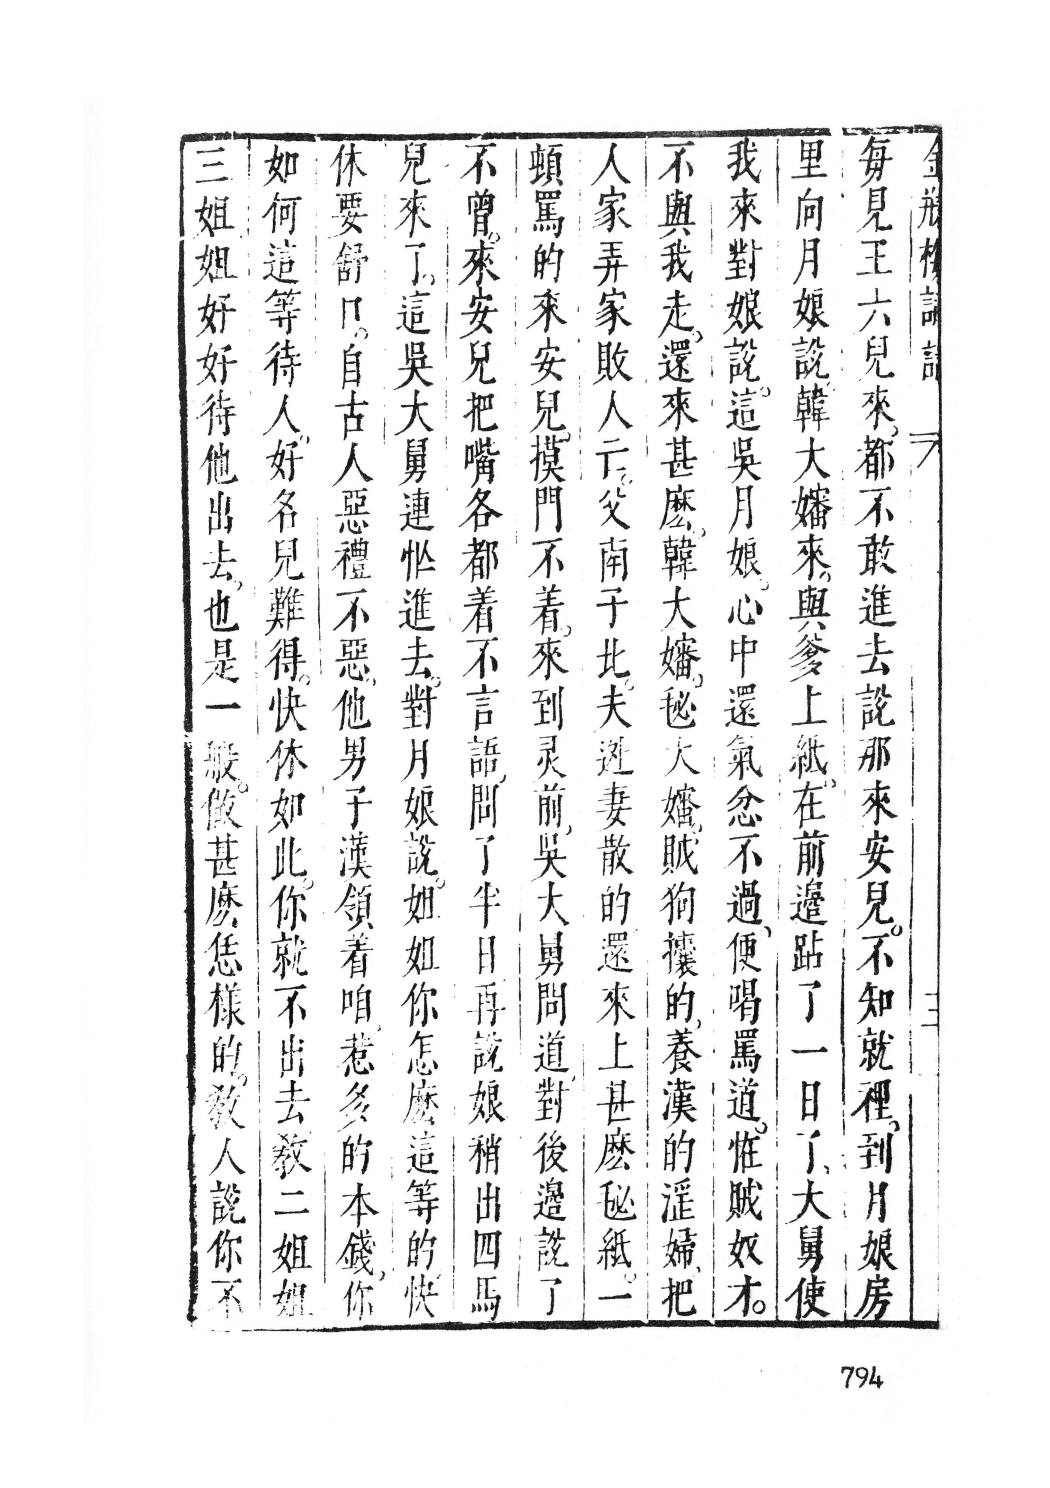 每見王六兒來。都不敢進去說那來安兒。不知就裡。到月娘房
里向月娘說。韓大嬸來。與爹上紙。在前邉跕了一日了、大舅使
我來對娘說。這吳月娘。心中還氣忿不過、便喝罵道。恠賊奴才。
不與我走。還來甚麽。韓大嬸。毯大嬸。賊狗攮的、養漢的滛婦、把
人家弄家敗人亡。父南子北。夫逃妻散的。還來上甚麽毯紙。一
頓罵的來安兒。摸門不着。來到灵前。吳大舅問道。對後邉說了
不曾。來安兒把嘴各都着不言語。問了半日。再說娘稍出四馬
兒來了。這吳大舅連忙進去。對月娘說。姐姐你怎麽這等的、快
休要舒口。自古人惡禮不惡。他男子漢領着咱。惹多的本錢。你
如何這等待人。好名兒難得。快休如此。你就不出去。教二姐姐
三姐姐好好待他出去。也是一般。做甚麽恁樣的。教人說你不
794